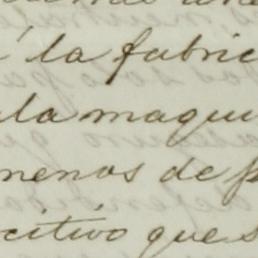 á la fabric
la maqui
menos de p
citivo que s